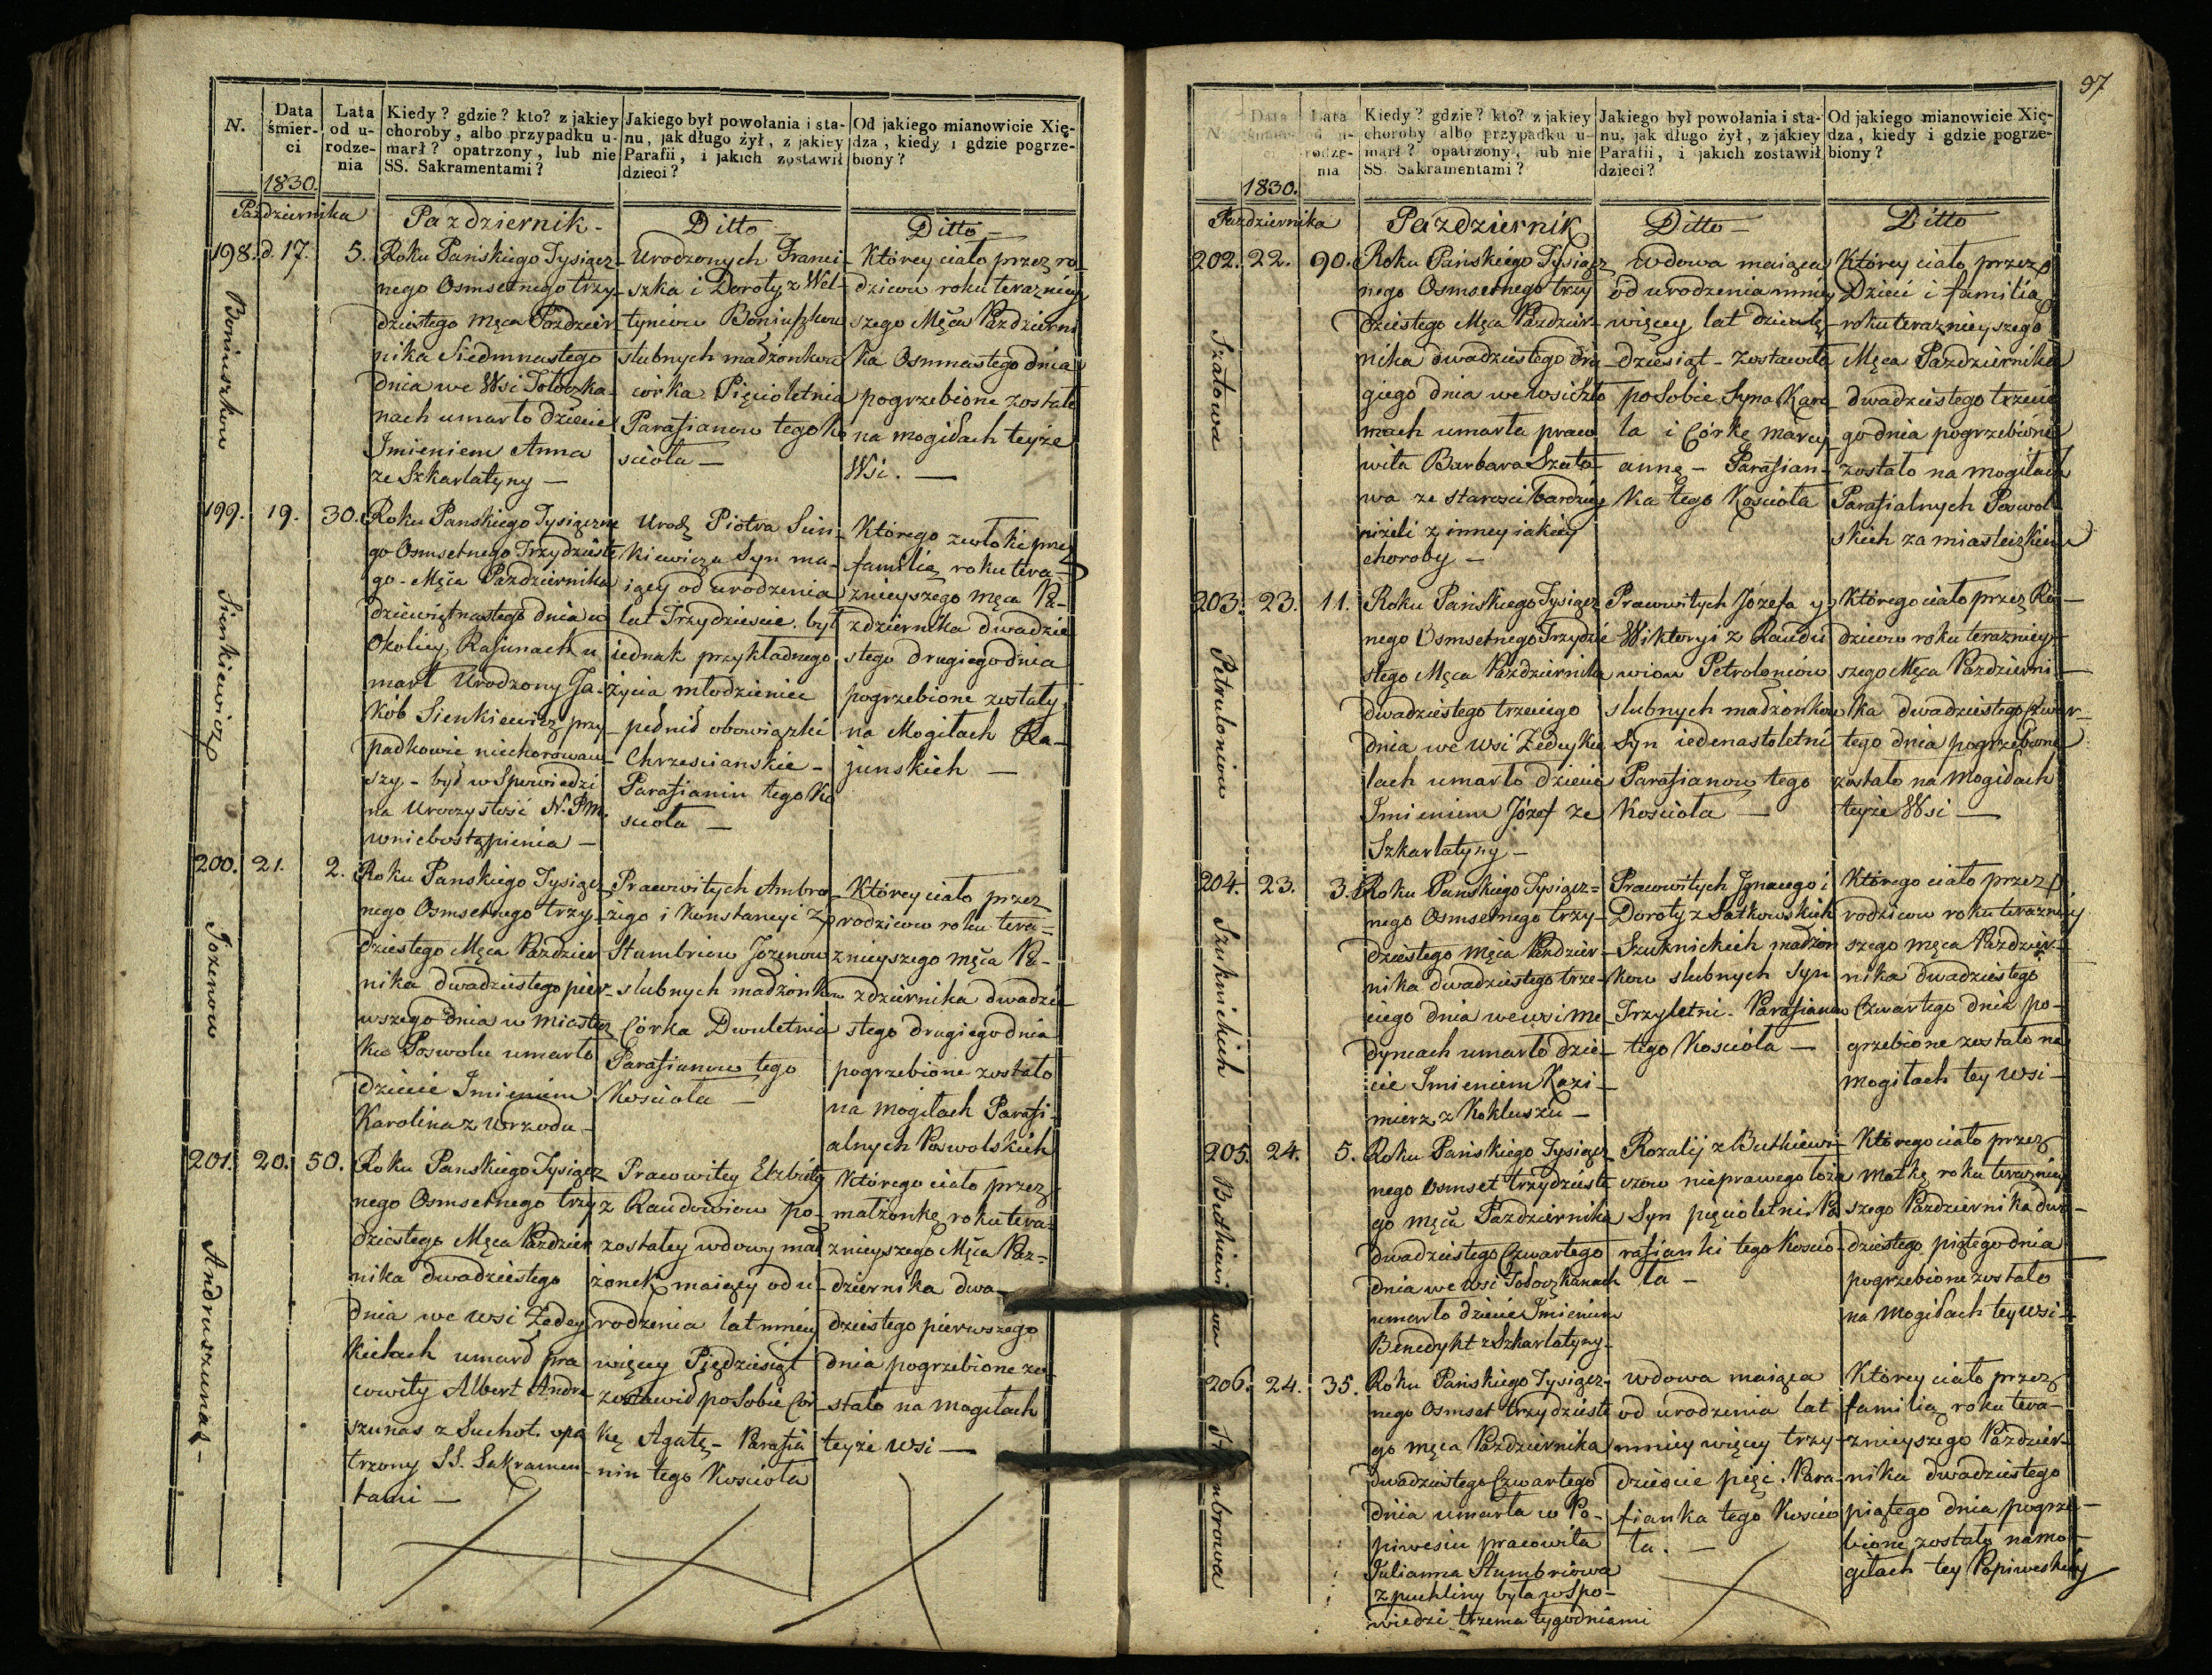 N.
Data śmier-ci
1830.
Lata od u-rodze-nia
Kiedy? gdzie? kto? z jakiey
choroby, albo przypadku u-
marł? opatrzony, lub nie
SS. Sakramentami?
Jakiego był powołania i sta-
nu, jak długo żył, z jakiey
Parafii, i jakich zostawił
dzieci?
Od jakiego mianowicie Xię-
dza, kiedy i gdzie pogrze-
biony?
Października
Pazdziernik-
Ditto-
Ditto-
198. d. 17. 5.
Boniuszkow
Roku Pańskiego Tysiącz-
nego Osmsetnego trzy-
dziestego Męca Paździer
nika Siedmnastego
dnia we Wsi Tołoczka-
nach umarło dziecie
Imieniem Anna
ze Szkarlatyny —
Urodzonych Franci-
szka i Doroty z Wel-
tyniow Boniuszkow
slubnych małżonkow
corka Pięcioletnia
Parafianow tego Ko
scioła —
Którey ciało przez ro-
dzicow roku teraźniey
szego Męca Październi
ka Osmnastego dnia
pogrzebione zostało
na mogiłach teyże
Wsi. —
199. 19. 30.
Sienkiewicz
Roku Panskiego Tysiączne
go Osmsetnego Trzydzieste
go - Męca Pazdziernika
dziewiętnastego dnia w
Okolicy Rajunach u
marł Urodzony Ja-
kób Sienkiewicz przy
padkowie niechorowaw-
szy - był w Spowiedzi
na Uroczystość N. P. M.
wniebostąpienia —
Urodz Piotra Sien-
kiewicza Syn ma-
iący od urodzenia
lat Trzydzieście. był
iednak przykładnego
życia młodzieniec
pełnił obowiązki
Chrzescianskie -
Parafianin tego Ko
scioła —
Którego zwłoki przez
familią roku tera-
znieyszego męca Pa-
zdziernika dwadzie
stego drugiego dnia
pogrzebione zostały
na Mogiłach Ra-
junskich —
200. 21. 2.
Jozenow
Roku Panskiego Tysiącz-
nego Osmsetnego trzy-
dziestego Męca Paździer
nika dwadziestego pier-
wszego dnia w Miastecz
ku Poswolu umarło
dziecie Imieniem
Karolina z Wrzodu -
Pracowitych Ambro-
żego i Konstancyi z
Stumbriow Jozenow
slubnych małżonkow
Córka Dwuletnia
Parafianow tego
Kościoła —
Którey ciało przez
rodzicow roku tera=
znieyszego męca Pa-
zdziernika dwadzie
stego drugiego dnia
pogrzebione zostało
na mogiłach Parafi-
alnych Poswolskich
201. 20. 50.
Andruszunas -
Roku Panskiego Tysiącz
nego Osmsetnego trzy
dziestego Męca Paździer
nika dwadziestego
dnia we wsi Zedey
kielach umarł pra
cowity Albert Andru
szunas z Suchot. opa
trzony SS. Sakramen-
tami —
Pracowitey Elżbiety
z Raudowiow po-
zostałey wdowy mał
żonek, maiący od u-
rodzenia lat mniey
więcey Pięćdziesiąt
zostawił po Sobie Cór
kę Agatę - Parafia
nin tego Kościoła
Którego ciało przez
małżonkę roku tera-
znieyszego Męca Paź=
dziernika dwa-
dziestego pierwszego
dnia pogrzebione zo-
stało na mogiłach
teyże wsi —
97
N.
Data śmier-ci
1830.
Lata od u-rodze-nia
Kiedy? gdzie? kto? z jakiey
choroby albo przypadku u-
marł? opatrzony, lub nie
SS. Sakramentami?
Jakiego był powołania i sta-
nu, jak długo żył, z jakiey
Parafii, i jakich zostawił
dzieci?
Od jakiego mianowicie Xię-
dza, kiedy i gdzie pogrze-
biony?
Pazdziernika
Październik
Ditto —
Ditto
202. 22. 90.
Szatowa
Roku Pańskiego Tysiącz
nego Osmsetnego trzy
dziestego Męca Paździer-
nika dwadziestego dru
giego dnia we wsi Szło
mach umarła praco
wita Barbara Szato-
wa ze starości bardziey
niżeli z inney iakiey
choroby —
wdowa maiąca
od urodzenia mniey
więcey lat dziewię-
dziesiąt - zostawiła
po Sobie Syna Karo
la i Córkę Mary
annę - Parafian-
ka tego Kościoła
Którey ciało przez
Dzieci i familią
roku teraznieyszego
Męca Pazdziernika
dwadziestego trzecie
go dnia pogrzebione
zostało na mogiłach
Parafialnych Poswol
skich za miasteczkiem
203. 23. 11.
Petruloniow
Roku Pańskiego Tysiącz
nego Osmsetnego Trzydzie
stego Męca Października
dwadziestego trzeciego
dnia we wsi Zedeykie
lach umarło dziecie
Imieniem Józef ze
Szkarlatyny —
Pracowitych Józefa y
Wiktoryi z Raudo
wiow Petroloniów
slubnych małżonkow
Syn iedenastoletni
Parafianow tego
Kościoła —
Którego ciało przez Ro-
dzicow roku teraźniey-
szego Męca Październi-
ka dwadziestego Czwar-
tego dnia pogrzebione
zostało na mogiłach
teyże Wsi —
204. 23. 3.
Szuknickich
Roku Pańskiego Tysiącz=
nego Osmsetnego trzy-
dziestego męca Paździer-
nika dwadziestego trze-
ciego dnia we wsi Me-
dyncach umarło dzie-
cie Imieniem Kazi-
mierz z Kokluszu —
Pracowitych Ignacego i
Doroty z Satkowskich
Szuknickich małżon
kow slubnych Syn
Trzyletni. Parafianow
tego Kościoła —
Którego ciało przez
rodzicow roku teraźniey
szego męca Paździer-
nika dwadziestego
Czwartego dnia po-
grzebione zostało na
mogiłach tey wsi —
205. 24. 5.
Roku Pańskiego Tysiącz
nego Osmset trzydzieste
go męca Października
dwadziestego Czwartego
dnia we wsi Tołoczkanach
umarło dziecie Imieniem
Benedykt z Szkarlatyny.
Rozalij z Butkiewi-
czow nieprawego łoża
Syn pięcioletni. Pa
rafianki tego Kościo-
ła —
Którego ciało przez
Matkę roku teraźniey
szego Października dwa-
dziestego piątego dnia
pogrzebione zostało
na mogiłach tey wsi -
206. 24. 35.
Roku Pańskiego Tysiącz-
nego Osmset trzydzieste
go męca Pazdziernika
dwadziestego Czwartego
dnia umarła w Po-
piwesiu pracowita
Julianna Stumbriowa
z puchliny była w Spo-
wiedzi trzema tygodniami
wdowa maiąca
od urodzenia lat
mniey więcey trzy-
dzieście pięć. Para-
fianka tego Kościo
ła. —
Którey ciało przez
familią roku tera-
znieyszego Paździer-
nika dwadziestego
piątego dnia pogrze-
bione zostało na mo-
giłach tey Popiweskiey